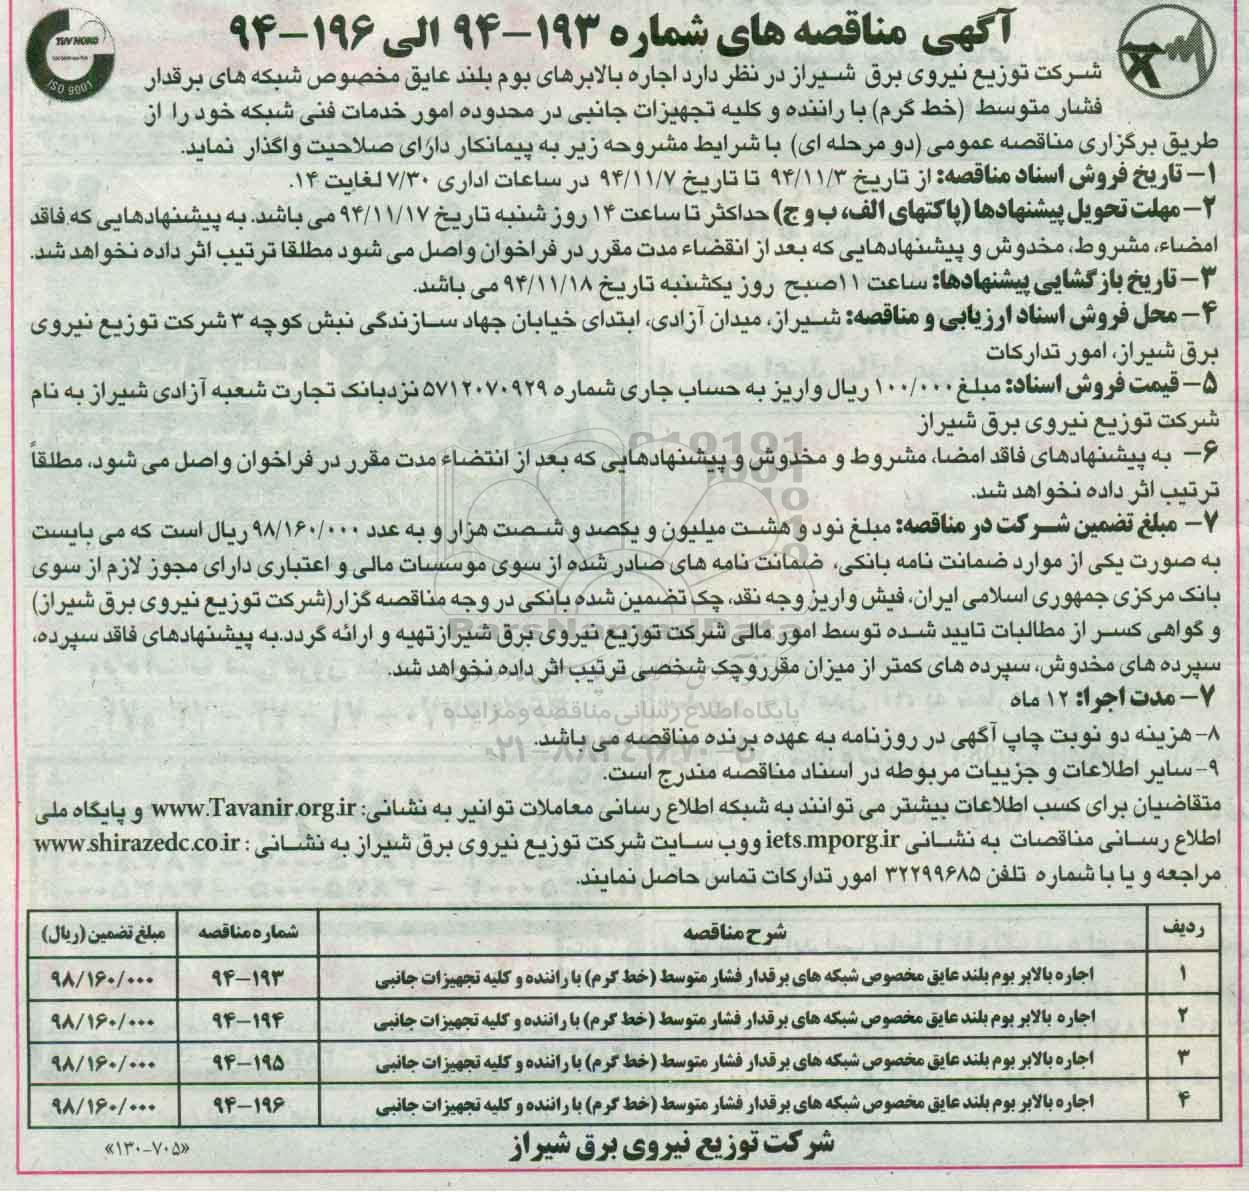 آگهی مناقصه های شماره ۱۹۳-۹۴ الی ۱۹۶-۹۴
TUV NORD
ISO 9001
شرکت توزیع نیروی برق شیراز در نظر دارد اجاره بالابرهای بوم بلند عایق مخصوص شبکه های برقدار
فشار متوسط (خط گرم) با راننده و کلیه تجهیزات جانبی در محدوده امور خدمات فنی شبکه خود را از
طریق برگزاری مناقصه عمومی (دو مرحله ای) با شرایط مشروحه زیر به پیمانکار دارای صلاحیت واگذار نماید.
۱- تاریخ فروش اسناد مناقصه: از تاریخ ۹۴/۱۱/۳ تا تاریخ ۹۴/۱۱/۷ در ساعات اداری ۷/۳۰ لغایت ۱۴.
۲- مهلت تحویل پیشنهادها (پاکتهای الف، ب و ج) حداکثر تا ساعت ۱۴ روز شنبه تاریخ ۹۴/۱۱/۱۷ می باشد. به پیشنهادهایی که فاقد
امضاء، مشروط، مخدوش و پیشنهادهایی که بعد از انقضاء مدت مقرر در فراخوان واصل می شود مطلقا ترتیب اثر داده نخواهد شد.
۳- تاریخ بازگشایی پیشنهادها: ساعت ۱۱صبح روز یکشنبه تاریخ ۹۴/۱۱/۱۸ می باشد.
۴- محل فروش اسناد ارزیابی و مناقصه: شیراز، میدان آزادی، ابتدای خیابان جهاد سازندگی نبش کوچه ۳ شرکت توزیع نیروی
برق شیراز، امور تدارکات
۵- قیمت فروش اسناد: مبلغ ۱۰۰/۰۰۰ ریال واریز به حساب جاری شماره ۵۷۱۲۰۷۰۹۲۹ نزدبانک تجارت شعبه آزادی شیراز به نام
شرکت توزیع نیروی برق شیراز
۶- به پیشنهادهای فاقد امضا، مشروط و مخدوش و پیشنهادهایی که بعد از انتضاء مدت مقرر در فراخوان واصل می شود، مطلقاً
ترتیب اثر داده نخواهد شد.
۷- مبلغ تضمین شرکت در مناقصه: مبلغ نود و هشت میلیون و یکصد و شصت هزار و به عدد ۹۸/۱۶۰/۰۰۰ ریال است که می بایست
به صورت یکی از موارد ضمانت نامه بانکی، ضمانت نامه های صادر شده از سوی موسسات مالی و اعتباری دارای مجوز لازم از سوی
بانک مرکزی جمهوری اسلامی ایران، فیش واریز وجه نقد، چک تضمین شده بانکی در وجه مناقصه گزار(شرکت توزیع نیروی برق شیراز)
و گواهی کسر از مطالبات تایید شده توسط امور مالی شرکت توزیع نیروی برق شیرازتهیه و ارائه گردد.به پیشنهادهای فاقد سپرده،
سپرده های مخدوش، سپرده های کمتر از میزان مقرروچک شخصی ترتیب اثر داده نخواهد شد.
۷- مدت اجرا: ۱۲ ماه
۸- هزینه دو نوبت چاپ آگهی در روزنامه به عهده برنده مناقصه می باشد.
۹- سایر اطلاعات و جزییات مربوطه در اسناد مناقصه مندرج است.
متقاضیان برای کسب اطلاعات بیشتر می توانند به شبکه اطلاع رسانی معاملات توانیر به نشانی: www.Tavanir.org.ir و پایگاه ملی
اطلاع رسانی مناقصات به نشانی iets.mporg.ir ووب سایت شرکت توزیع نیروی برق شیراز به نشانی : www.shirazedc.co.ir
مراجعه و یا با شماره تلفن ۳۲۲۹۹۶۸۵ امور تدارکات تماس حاصل نمایند.
ردیف شرح مناقصه شماره مناقصه مبلغ تضمین (ریال)
۱ اجاره بالابر بوم بلند عایق مخصوص شبکه های برقدار فشار متوسط (خط گرم) با راننده و کلیه تجهیزات جانبی ۱۹۳-۹۴ ۹۸/۱۶۰/۰۰۰
۲ اجاره بالابر بوم بلند عایق مخصوص شبکه های برقدار فشار متوسط (خط گرم) با راننده و کلیه تجهیزات جانبی ۱۹۴-۹۴ ۹۸/۱۶۰/۰۰۰
۳ اجاره بالابر بوم بلند عایق مخصوص شبکه های برقدار فشار متوسط (خط گرم) با راننده و کلیه تجهیزات جانبی ۱۹۵-۹۴ ۹۸/۱۶۰/۰۰۰
۴ اجاره بالابر بوم بلند عایق مخصوص شبکه های برقدار فشار متوسط (خط گرم) با راننده و کلیه تجهیزات جانبی ۱۹۶-۹۴ ۹۸/۱۶۰/۰۰۰
شرکت توزیع نیروی برق شیراز
«۱۳۰-۷۰۵»
ParsNamadData
پایگاه اطلاع رسانی مناقصه و مزایده